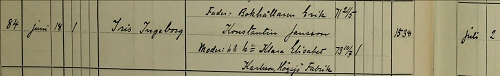 Fader: Bokhållaren Erik 71 2/5
84 juni 18 1 Iris Ingeborg Konstantin Jansson 1534 juli 2
Moder: h h tr Klara Elisabet 73 10/7 1
Karlsson, Högsjö Fabrik